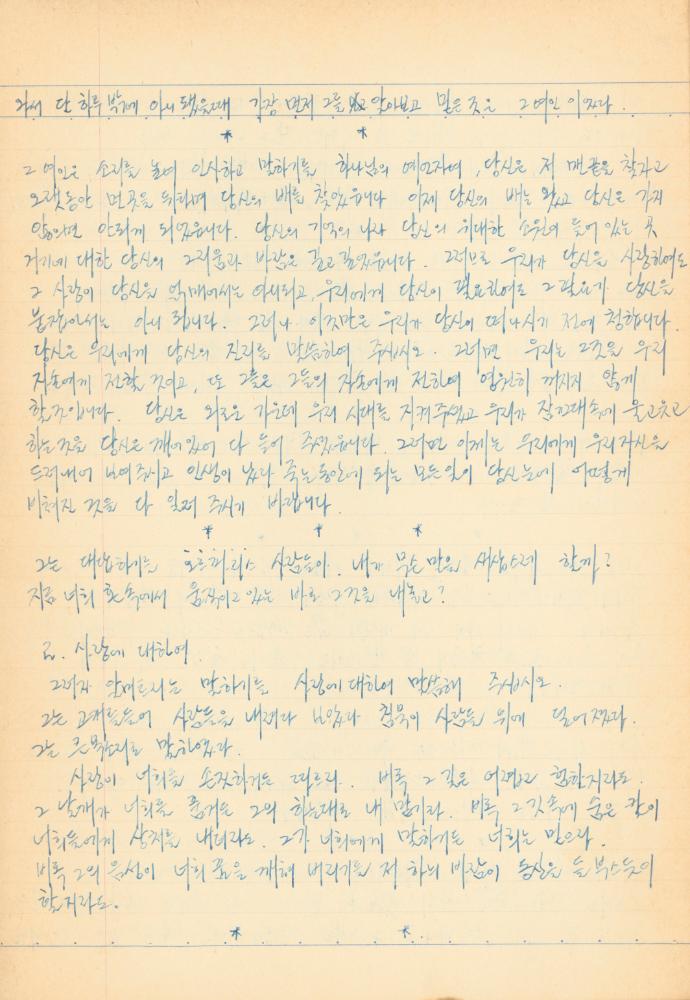 와서 단 하루 밖에 아니 됐을때 가장 먼저 그를 보고 알아보고 믿은 것은 그 여인 이었다.
* *
그 여인은 소리를 높여 인사하고 말하기를, 하나님의 예언자여, 당신은 저 맨끝을 찾자고
오랫동안 먼곳을 뒤지며 당신의 배를 찾았읍니다 이제 당신의 배는 왔고 당신은 가지
않으면 안되게 되었읍니다. 당신의 기억의 나라 당신의 위대한 소원의 들어 있는 곳
거기에 대한 당신의 그리움과 바람은 깊고 깊었읍니다. 그러므로 우리가 당신을 사랑하여도
그 사랑이 당신을 얽매어서는 아니되고, 우리에게 당신이 필요하여도 그 필요가 당신을
붙잡아서는 아니 됩니다. 그러나 이것만은 우리가 당신이 떠나시기 전에 청합니다.
당신은 우리에게 당신의 진리를 말씀하여 주십시오. 그러면 우리는 그것을 우리
자손에게 전할 것이고, 또 그들은 그들의 자손에게 전하여 영원히 꺼지지 않게
할것입니다. 당신은 외로운 가운데 우리 시대를 지켜주셨고 우리가 잠꼬대속에 울고웃고
하는것을 당신은 깨어있어 다 들어 주셨읍니다. 그러면 이제는 우리에게 우리자신을
드러내어 보여주시고 인생이 났다 죽는동안에 되는 모든일이 당신눈에 어떻게
비쳐진 것을 다 일러 주시기 바랍니다.
* * *
그는 대답하기를 오르파리스 사람들아. 내가 무슨 말을 새삼스레 할까?
지금 너희 혼속에서 움직이고 있는 바로 그것을 내놓고?
2. 사랑에 대하여.
그러자 알메트라는 말하기를 사랑에 대하여 말씀해 주십시오.
그는 고개를들어 사람들을 내려다 보았다 침묵이 사람들 위에 덮어졌다.
그는 큰목소리로 말하였다.
사랑이 너희를 손짓하거든 따르라. 비록 그 길은 어렵고 험할지라도.
그 날개가 너희를 품거든 그의 하는대로 내 맡기라. 비록 그 깃속에 숨은 칼이
너희들에게 상처를 내더라도. 그가 너희에게 말하거든 너희는 믿으라.
비록 그의 음성이 너희 꿈을 깨쳐 버리기를 저 하늬 바람이 동산을 들부수듯이
할지라도.
* *